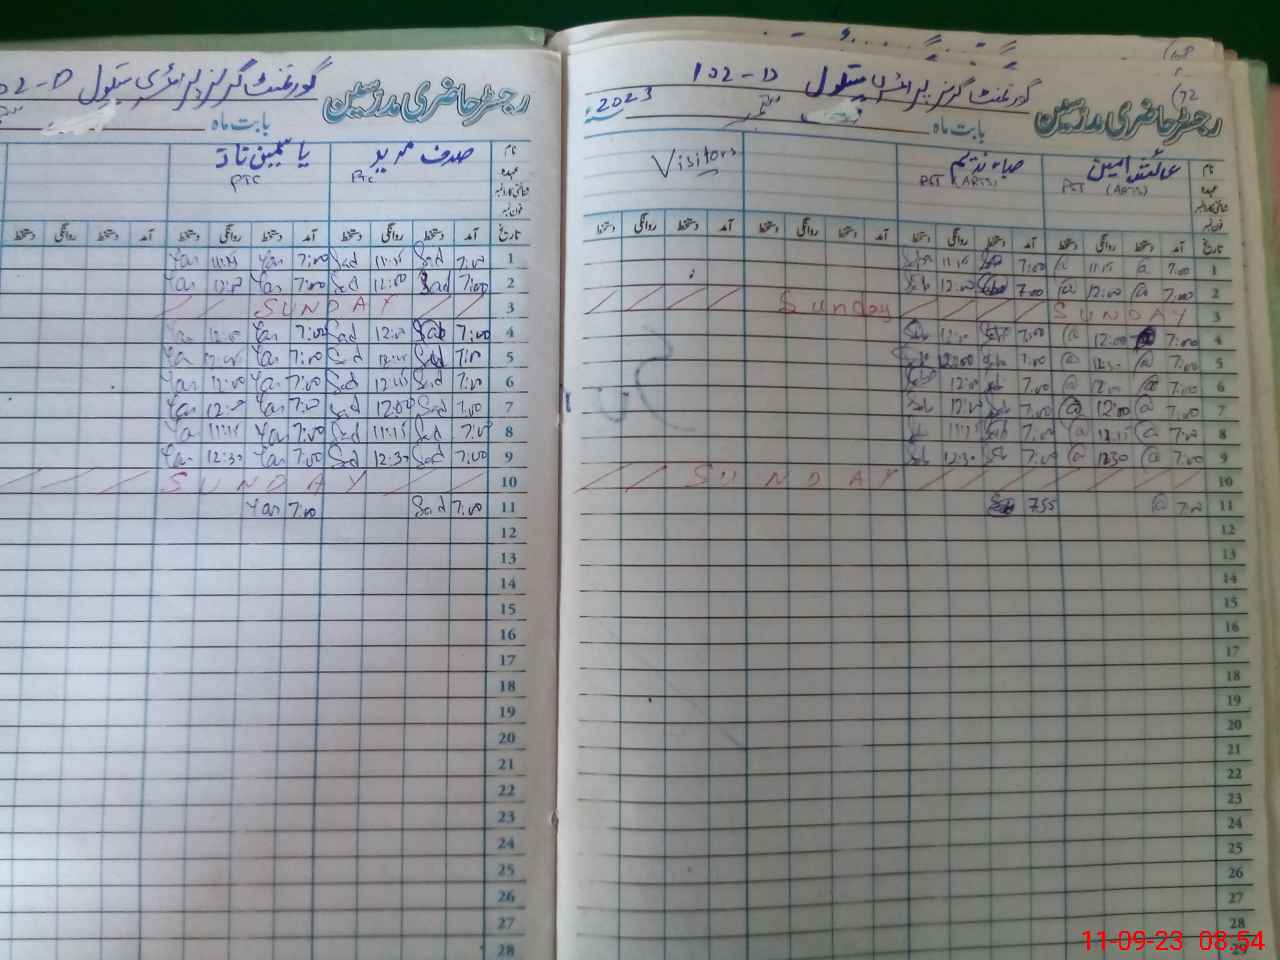 رجسٹر حاضری مدرسین گورنمنٹ گرلز پرائمری سکول 102-D
بابت ماہ ستمبر 2023
نام عائشہ امین صباء ندیم Visitors
عہدہ PST (ARTS) PST (ARTS)
تاریخ آمد دستخط روانگی دستخط آمد دستخط روانگی دستخط آمد دستخط روانگی دستخط آمد دستخط روانگی دستخط
1 7:00 @ 11:15 @ 7:00 11:15
2 7:00 @ 12:00 @ 7:00 12:00
3 SUNDAY Sunday
4 7:00 12:00 @ 7:00
5 7:00 @ 12:30 @ 7:00 12:00
6 7:00 @ 12:00 @ 7:00 12:00
7 7:00 @ 12:00 @ 7:00
8 7:00 @ @ 7:00 11:15
9 7:00 @ 12:30 @ 7:00 12:30
10 SUNDAY
11 7:00 @ 7:55
12
13
14
15
16
17
18
19
20
21
22
23
24
25
26
27
28
29
رجسٹر حاضری مدرسین گورنمنٹ گرلز پرائمری سکول 102-D
بابت ماہ
نام صدف یاسمین ناز
عہدہ PTC PTC
تاریخ آمد دستخط روانگی دستخط آمد دستخط روانگی دستخط آمد دستخط روانگی دستخط
1 7:00 Sad 11:15 Sad 7:00 Yas 11:15 Yas
2 7:00 Sad 12:00 Sad 7:00 Yas 12:00 Yas
3 SUNDAY
4 7:00 Sad 12:00 Sad 7:00 Yas 12:00 Yas
5 7:00 Sad Sad 7:00 Yas Yas
6 7:00 Sad Sad 7:00 Yas 12:00 Yas
7 7:00 Sad 12:00 Sad 7:00 Yas 12:00 Yas
8 7:00 Sad 11:15 Sad 7:00 Yas 11:15 Yas
9 7:00 Sad 12:30 Sad 7:00 Yas 12:30 Yas
10 SUNDAY
11 7:00 Sad 7:00 Yas
12
13
14
15
16
17
18
19
20
21
22
23
24
25
26
27
28
11-09-23 08:54